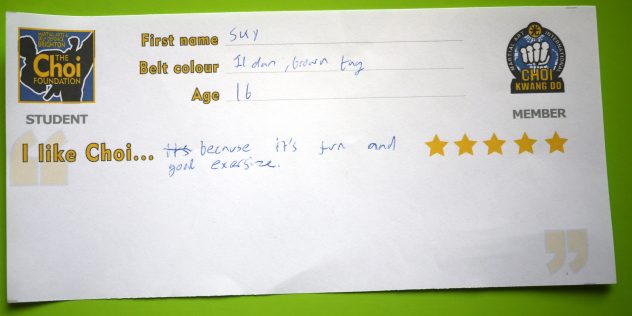 MARTIAL ARTS &
SELF DEFENCE
BRIGHTON
THE
Choi
FOUNDATION
STUDENT
First name Suy
Belt colour Il dan, brown tag
Age 16
MARTIAL ART INTERNATIONAL
CHOI
KWANG DO
MEMBER
I like Choi... Its because it's fun and
good exersize.